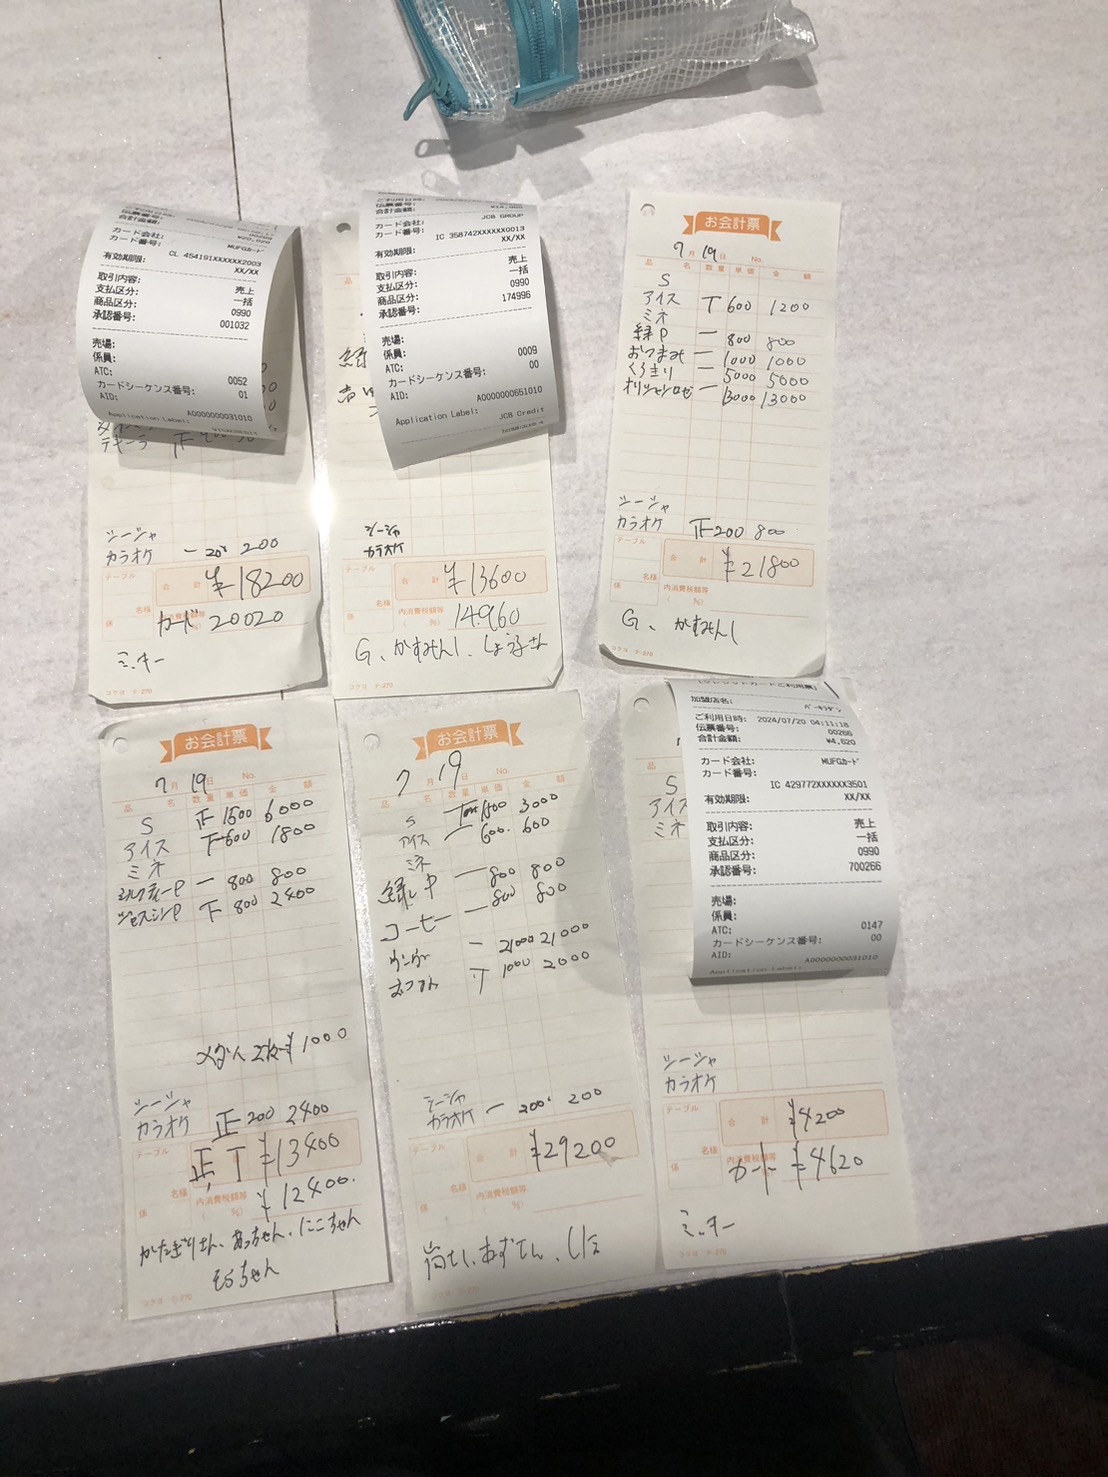 ¥20,020
伝票番号:
合計金額:
カード会社: MUFGカード
カード番号:
CL 454191XXXXXX2003
有効期限: XX/XX
取引内容: 売上
支払区分: 一括
商品区分: 0990
承認番号: 001032
売場:
係員:
ATC: 0052
カードシーケンス番号: 01
AID: A0000000031010
Application Label:
テキーラ 正
シージャ
カラオケ 一 200 200
テーブル 合計 ¥18200
名様
係
カード 20020
ミッキー
コクヨ テ-270
ご利用日時:
伝票番号:
合計金額:
カード会社: JCB GROUP
カード番号:
IC 358742XXXXXX0013
有効期限: XX/XX
取引内容: 売上
支払区分: 一括
商品区分: 0990
承認番号: 174996
売場:
係員:
ATC: 0009
カードシーケンス番号: 00
AID: A0000000651010
Application Label: JCB Credit
品
シージャ
カラオケ
テーブル 合計 ¥13600
名様 内消費税額等
係 ( %) 14960
G、かすみん、しょうさん
コクヨ テ-270
お会計票
7月19日 No.
品名 数量 単価 金額
S
アイス T 600 1200
ミネ
緑P 一 800 800
おつまみ 一 1000 1000
くろきり 一 5000 5000
一 13000 13000
シージャ
カラオケ 正 200 800
テーブル 合計 ¥21800
名様 内消費税額等
係 ( %)
G、かすみん
コクヨ テ-270
お会計票
7月19日 No.
品名 数量 単価 金額
S 正 1500 6000
アイス 下 600 1800
ミネ
ミルクティーP 一 800 800
ジャスミンP 下 800 2400
¥1000
シージャ
カラオケ 正 200 2400
テーブル 正 T ¥13400
名様 内消費税額等
係 ( %) ¥12400.
かたぎりさん、あっちゃん、にこちゃん
そらちゃん
コクヨ テ-270
お会計票
7月19日 No.
品名 数量 単価 金額
S 3000
アイス 一 600 600
ミネ
緑P 一 800 800
コーヒー 一 800 800
一 21000 21000
T 1000 2000
シージャ
カラオケ 一 200 200
テーブル 合計 ¥29200
名様 内消費税額等
係 ( %)
コクヨ テ-270
加盟店名:
ご利用日時: 2024/07/20 04:11:18
伝票番号: 00266
合計金額: ¥4,620
カード会社: MUFGカード
カード番号:
IC 429772XXXXXX3501
有効期限: XX/XX
取引内容: 売上
支払区分: 一括
商品区分: 0990
承認番号: 700266
売場:
係員:
ATC: 0147
カードシーケンス番号: 00
AID: A0000000031010
Application Label:
品
S
アイス
ミネ
シージャ
カラオケ
テーブル 合計 ¥4200
名様 内消費税額等
係 カード ¥4620
ミッキー
コクヨ テ-270